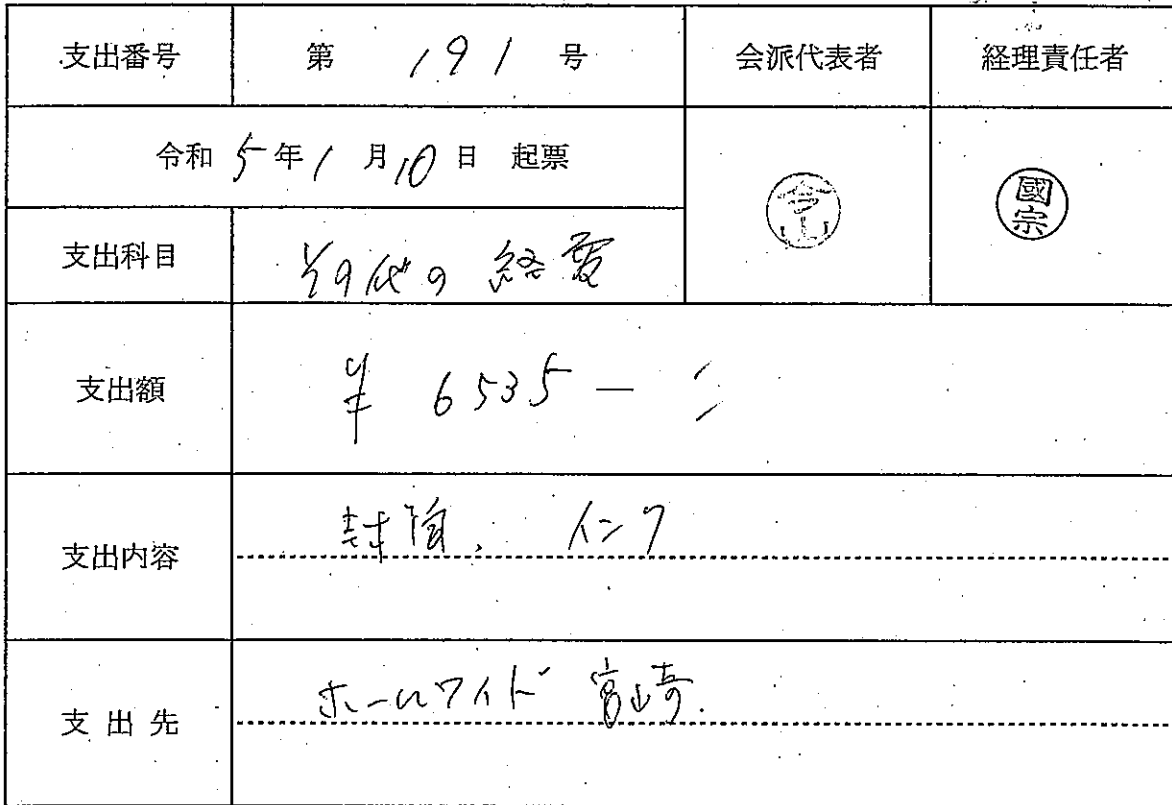 支出番号 第 191 号 会派代表者 経理責任者
令和 5 年 1 月 10 日 起票
國宗
支出科目 その他の経費
支出額 ¥ 6535 ー
支出内容 封筒、インク
支出先 ホームワイド 宮崎